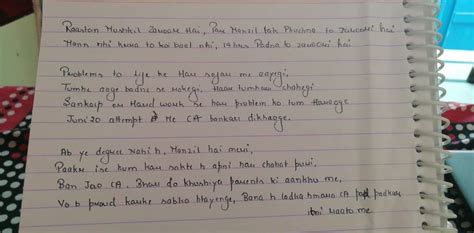 Raastan Mushkil zaroor Hai, Par Manzil tak Phuchna to zaroori hai
Mann nhi huwa to koi baat nhi, 14 hrs Padna to zaroori hai
Problems to life ke Har safar me aayegi,
Tumhe aage badne se rokegi, Haar tumhari chahegi
Sankalp or Hard work se har problem ko tum Haraoge
June 20 attempt me CA bankar dikhaoge.
Ab ye degree Nahi h, Manzil hai meri,
Paakar ise hum kar sakte h apni har chahat puri,
Ban Jao CA, Bhar do khushiya parents ki aankho me,
Vo b proud karke sabko btayenge, Bana h ladka hmara CA padkar
Raato me